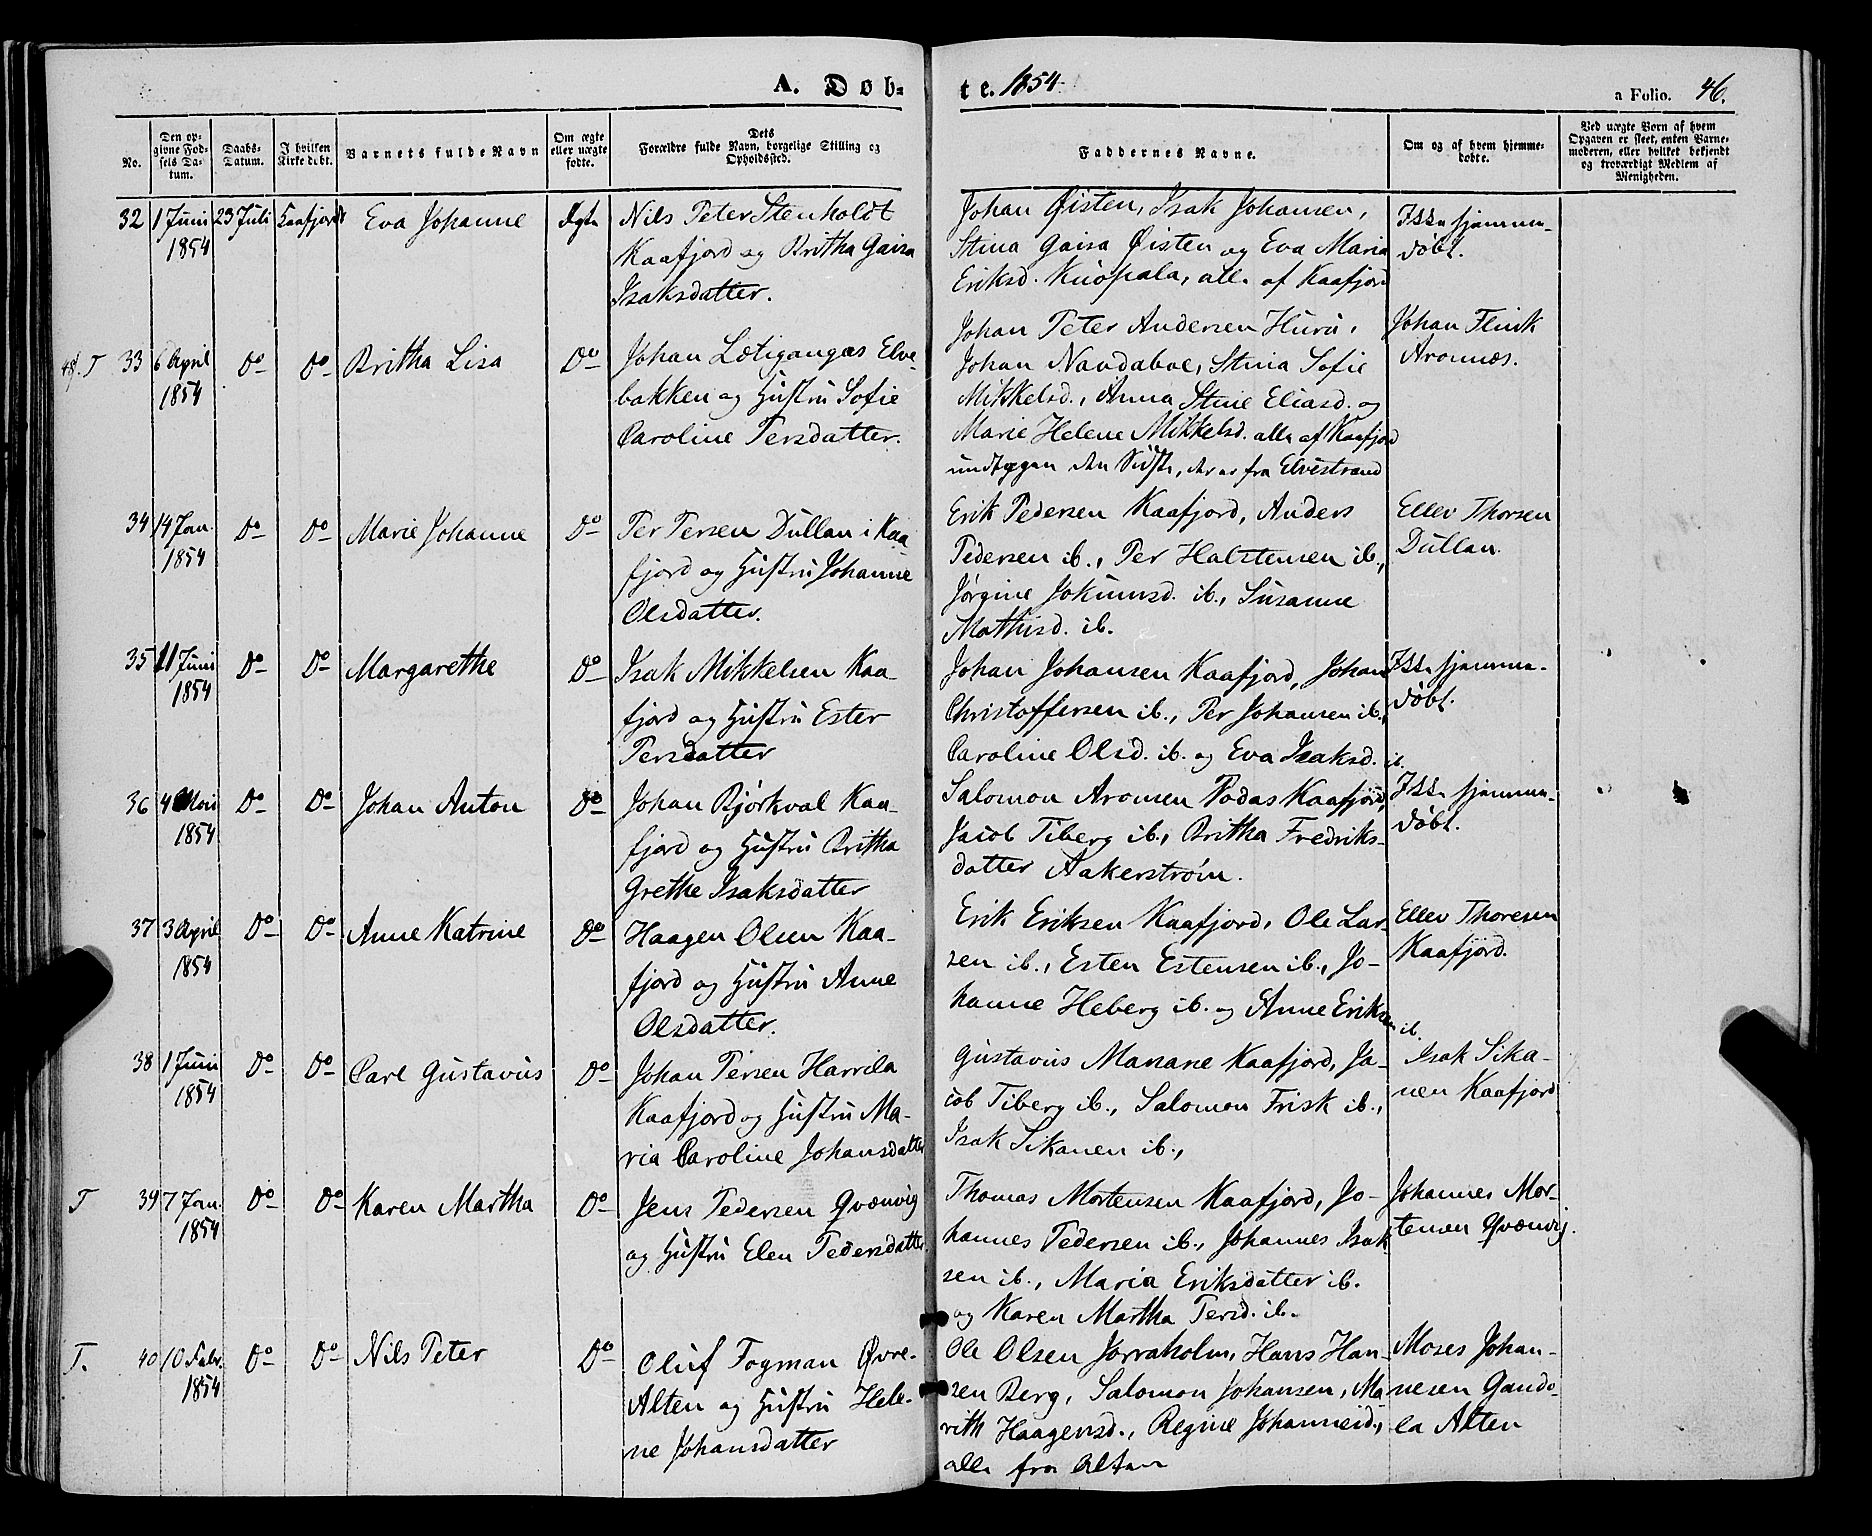 A. Døb-
te. 1854.
a Folio. 46.
No.
Den op-
givne Fød-
sels Da-
tum.
Daabs-
Datum.
I hvilken
Kirke døbt.
Barnets fulde Navn
Om ægte
eller uægte
fødte.
Dets
Forældre fulde Navn, borgelige Stilling og
Opholdssted.
Faddernes Navne.
Om og af hvem hjemme-
døbte.
Ved uægte Børn af hvem
Opgaven er skeet, enten Barne-
moderen, eller hvilket bekjendt
og troværdigt Medlem af
Menigheden.
32 1 Juni 23 Juli Kaafjord Eva Johanne Ægte Nils Peter Stenholdt
1854 Kaafjord og Britha Gaisa
Isaksdatter.
Johan Øisten, Isak Johansen,
Stina Gaisa Øisten og Eva Maria
Eriksd. Kuopala, alle af Kaafjord
Ikke hjemme-
døbt.
T 33 6 April Do Do Britha Lisa Do Johan Lætigangas Elve-
1854 bakken og Hustru Sofie
Caroline Persdatter.
Johan Peter Andersen Huru,
Johan Naudaboe, Stina Sofie
Mikkelsd., Anna Stine Eliasd. og
Marie Helene Mikkelsd. alle af Kaafjord
undtagen den Sidste, der er fra Elvestrand
Johan Flink
Aronnæs.
34 14 Jan. Do Do Marie Johanne Do Per Persen Dullan i Kaa-
1854 fjord og Hustru Johanne
Olsdatter.
Erik Pedersen Kaafjord, Anders
Pedersen ib., Per Halstensen ib.,
Jørgine Jokumsd. ib., Susanne
Mathisd. ib.
Ellev Thorsen
Dullan.
35 11 Juni Do Do Margarethe Do Isak Mikkelsen Kaa-
1854 fjord og Hustru Ester
Persdatter
Johan Johansen Kaafjord, Johan
Christoffersen ib., Per Johansen ib.,
Caroline Olsd. ib. og Eva Isaksd. ib.
Ikke hjemme-
døbt.
36 4 Mai Do Do Johan Anton Do Johan Bjørkval Kaa-
1854 fjord og Hustru Britha
Grethe Isaksdatter
Salomon Aronsen Podas Kaafjord,
Jacob Tiberg ib., Britha Fredriks-
datter Aakerstrøm.
Ikke hjemme-
døbt.
37 3 April Do Do Anne Katrine Do Haagen Olsen Kaa-
1854 fjord og Hustru Anne
Olsdatter.
Erik Eriksen Kaafjord, Ole Lar-
sen ib., Esten Estensen ib., Jo-
hanne Heberg ib. og Anne Eriksen ib.
Ellev Thoresen
Kaafjord.
38 1 Juni Do Do Carl Gustavus Do Johan Persen Harrila
1854 Kaafjord og Hustru Ma-
ria Caroline Johansdatter
Gustavus Manane Kaafjord, Ja-
cob Tiberg ib., Salomon Frisk ib.,
Isak Sikanen ib.,
Isak Sika-
nen Kaafjord
T 39 7 Jan. Do Do Karen Martha Do Jens Pedersen Qvænvig
1854 og Hustru Elen Pedersdatter
Thomas Mortensen Kaafjord, Jo-
hannes Pedersen ib., Johannes Isak
sen ib., Maria Eriksdatter ib.
og Karen Martha Persd. ib.
Johannes Mor-
tensen Qvænvig.
T. 40 10 Febr. Do Do Nils Peter Do Oluf Fogman Øvre-
1854 Alten og Hustru Hele-
ne Johansdatter
Ole Olsen Jorraholm, Hans Han-
sen Berg, Salomon Johansen, Ma
rith Haagensd., Regine Johannesd.,
alle fra Alten
Moses Johan-
nesen Gando-
la Alten